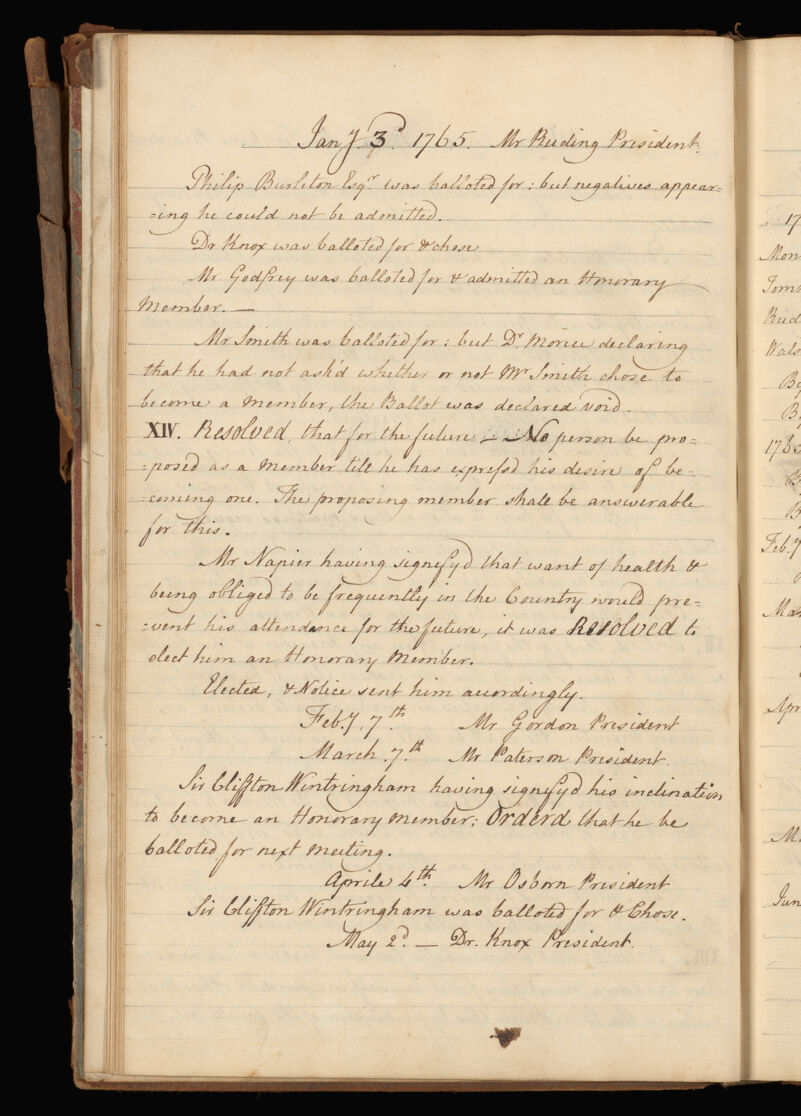 Jan.y 3d. 1765. Mr Reeding President.
Philip Burleton Esqr. was balloted for: but negatives appear=
=ing he could not be admitted.
Dr Knox was balloted for & chose
Mr. Godfrey was balloted for & admitted an Honorary
Member. —
Mr Smith was balloted for: but Dr. Morice declaring
that he had not ask'd whether or not Mr Smith chose to
become a member, the Ballot was declared void.
XIV. Resolved, that for the future — No person be pro=
=posed as a Member till he has expressd his desire of be=
=coming one. The proposing member shall be answerable
for this.
Mr Napier having signefyd that want of health &
being obliged to be frequently in the Country would pre=
=vent his attendance for the future, it was Resolved to
elect him an Honorary Member.
Elected, & Notice sent him accordingly.
Feb.y. 7.th Mr. Gordon President
March. 7.th Mr Paterson President.
Sir Cliffton Wintringham having signefyd his inclination
to become an Honorary member; Orderd that he be
balloted for next meeting.
Aprile 4th. Mr Osborn President
Sir Cliffton Wintringham was balloted for & Chose.
May 2d — Dr. Knox President.
17
Mon
Reed
Wals
B
176
B
Feb.y
Mar
Apr
M
Jun